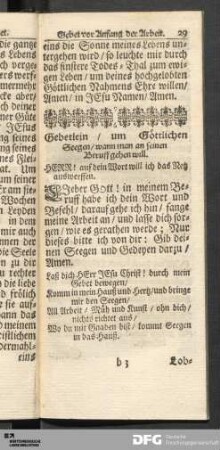 Gebet vor Anfang der Arbeit. 29
eins die Sonne meines Lebens un-
tergehen wird / so leuchte mir durch
das finstere Todes-Thal zum ewi-
gen Leben / um deines hochgelobten
Göttlichen Nahmens Ehre willen /
Amen / in JEsu Namen / Amen.
Gebetlein / um Göttlichen
Seegen / wann man an seinen
Beruff gehen will.
HERR! auf dein Wort will ich das Netz
auswerffen.
LIeber GOtt! in meinem Be-
ruff habe ich dein Wort und
Befehl / darauf gehe ich dan / fange
meine Arbeit an / und lasse dich sor-
gen / wie es gerathen werde; Nur
dieses bitte ich von dir: Gib dei-
nen Seegen und Gedeyen darzu /
Amen.
Laß dich HErr JEsu Christ! durch mein
Gebet bewegen /
Komm in mein Hauß und Hertz / und bringe
mir den Seegen /
All Arbeit / Müh und Kunst / ohn dich /
nichts richtet aus /
Wo du mit Gnaden bist / kommt Seegen
in das Hauß.
b 3 Lob-
die gantze
cke
eins
DFG